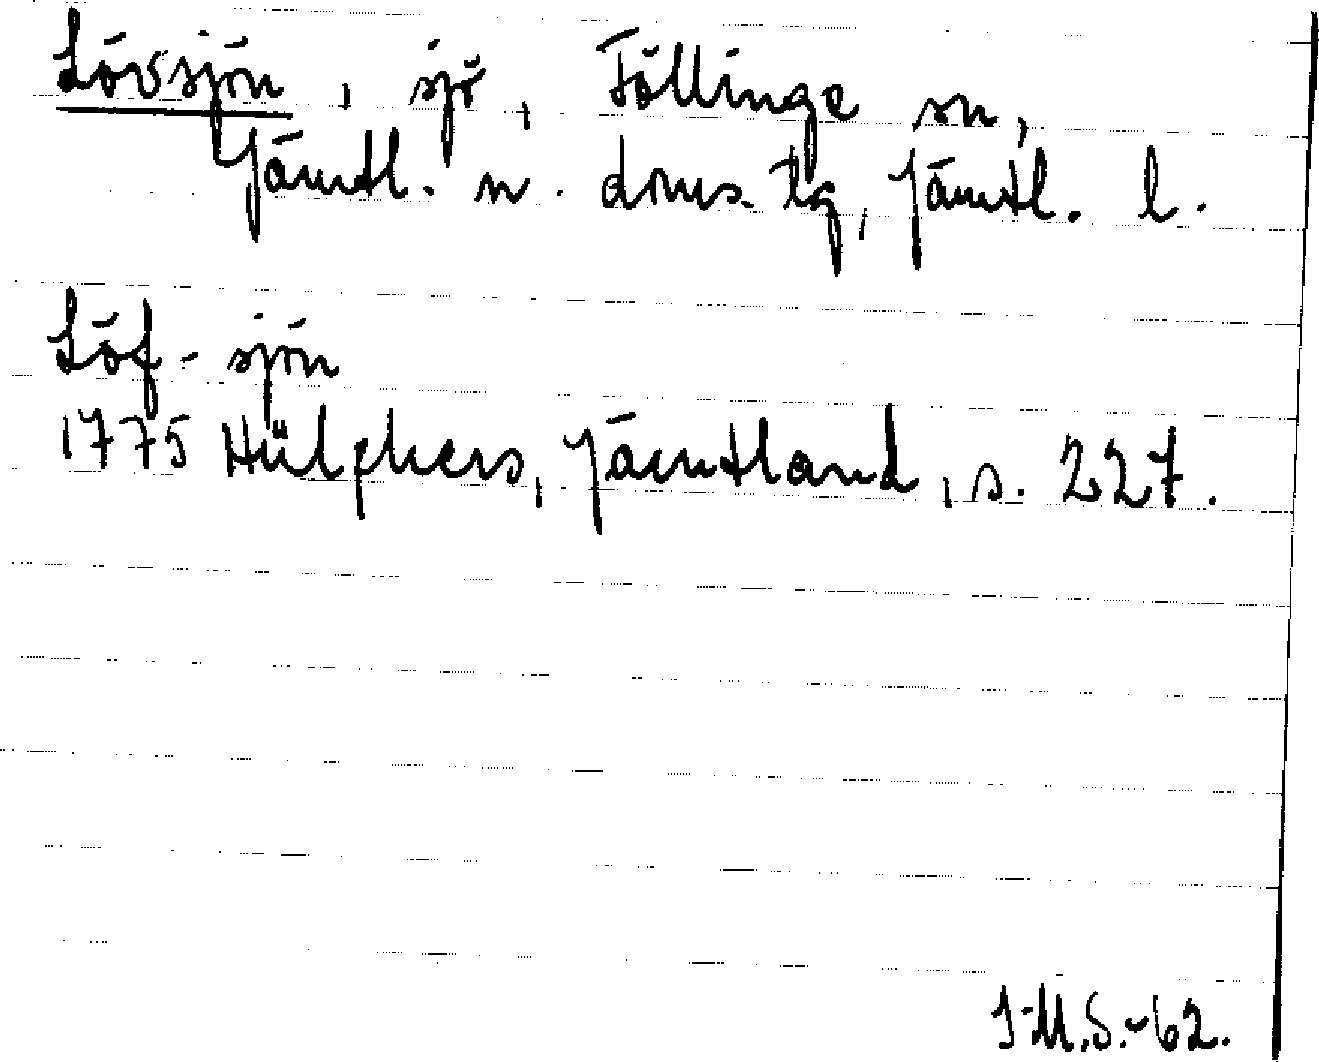 Lövsjön, sjö, Föllinge sn,
Jämtl. n. doms. lg, Jämtl. l.
Löf-sjön
1775 Hülphers, Jämtland, s. 227.
I-M.S.-62.